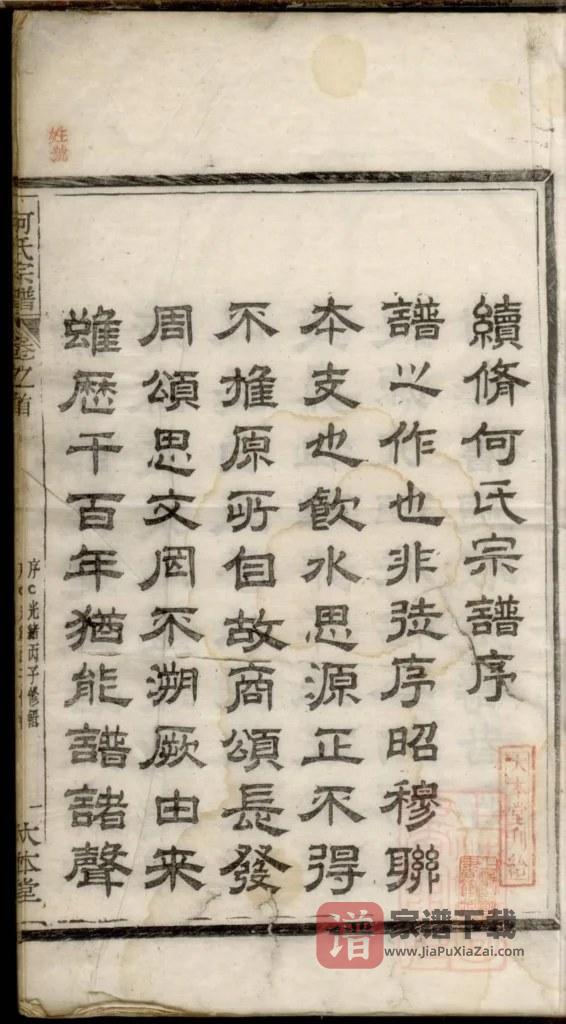 續脩何氏宗譜序
譜之作也非徒序昭穆聯
本支也飲水思源正不得
不推原所自故商頌長發
周頌思文罔不溯厥由来
雖歷千百年猶能譜諸聲
何氏宗譜
卷之首
序
光緒丙子修輯
一
大本堂
姓號
譜
家谱下载
www.JiaPuXiaZai.com